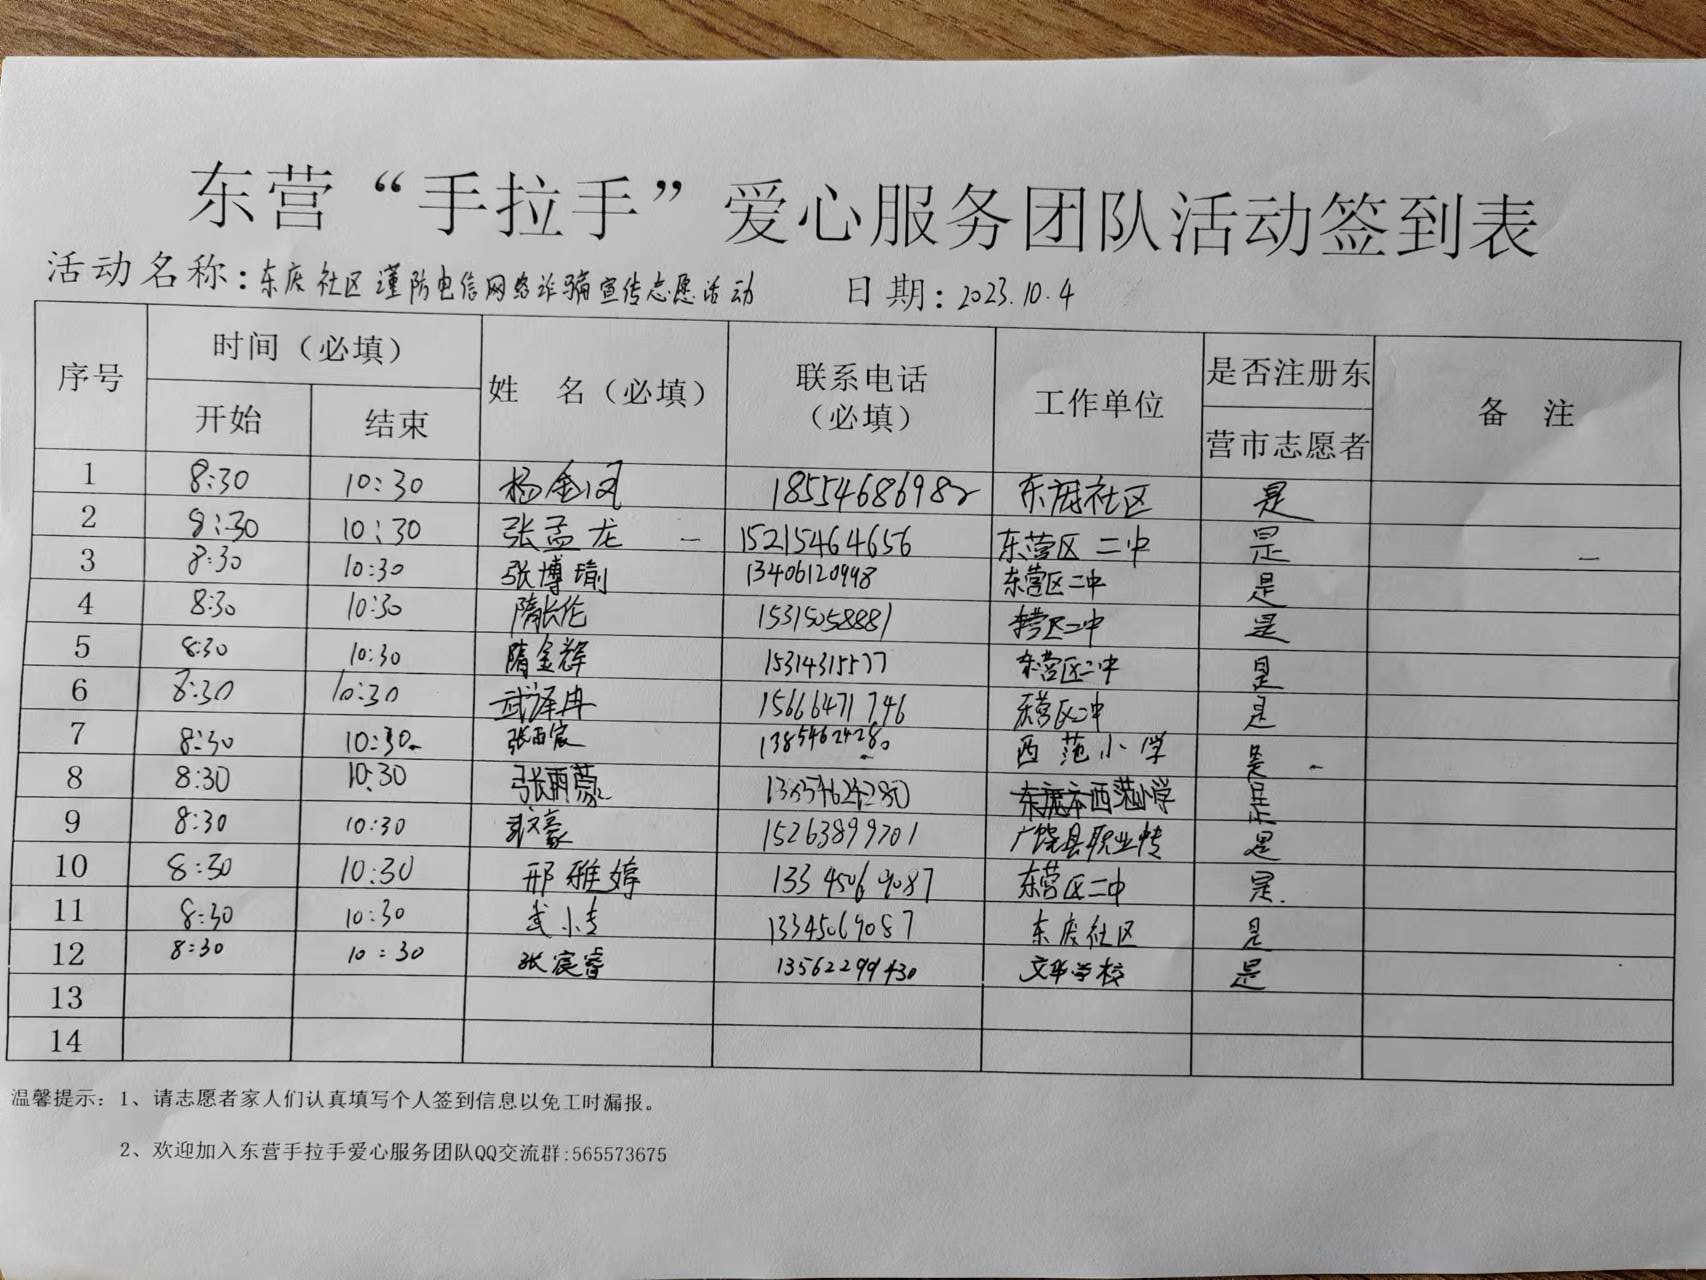 东营“手拉手”爱心服务团队活动签到表
活动名称：东庞社区谨防电信网络诈骗宣传志愿活动 日期：2023.10.4
序号 时间（必填） 姓 名（必填） 联系电话（必填） 工作单位 是否注册东营市志愿者 备 注
开始 结束
1 8:30 10:30 杨金凤 18554686982 东庞社区 是
2 8:30 10:30 张孟龙 15215464656 东营区二中 是
3 8:30 10:30 张博瑜 13406120998 东营区二中 是
4 8:30 10:30 隋长伦 15315058881 东营区二中 是
5 8:30 10:30 隋金辉 15314315577 东营区二中 是
6 8:30 10:30 武泽冉 15666471746 东营区二中 是
7 8:30 10:30 张雨宸 13854624280 西范小学 是
8 8:30 10:30 张雨蒙 13854624280 西范小学 是
9 8:30 10:30 武文豪 15263899701 广饶县职业中专 是
10 8:30 10:30 邢雅婷 13345069087 东营区二中 是
11 8:30 10:30 武小专 13345069087 东庞社区 是
12 8:30 10:30 张宸睿 13562299430 文华学校 是
13
14
温馨提示：1、请志愿者家人们认真填写个人签到信息以免工时漏报。
2、欢迎加入东营手拉手爱心服务团队QQ交流群:565573675